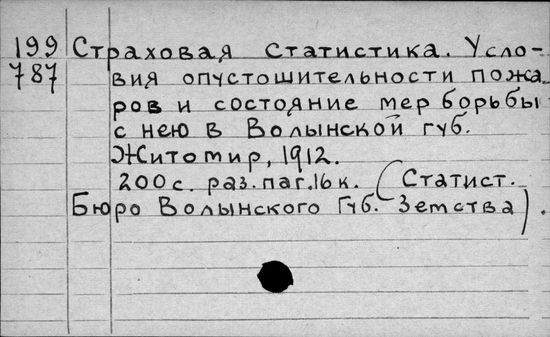 199 Страховая статистика. Усло-
787 вия опустошительности пожа
ров и состояние мер борьбы
с нею в Волынской губ.
Житомир, 1912.
200 с. раз. паг. 16 к. (Статист.
Бюро Волынского Губ. Земства).